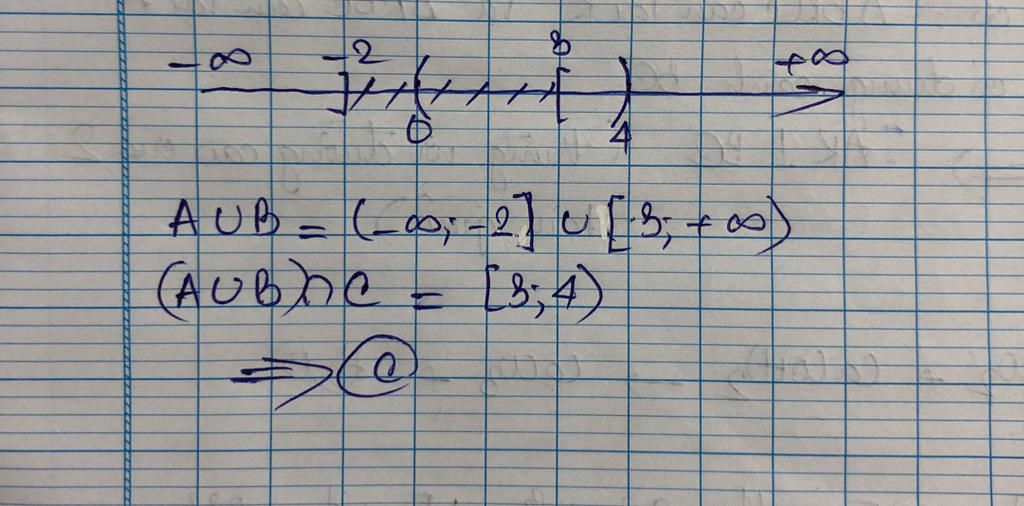 -∞ -2 3 +∞
0 4
A∪B = (-∞; -2] ∪ [3; +∞)
(A∪B)∩C = [3; 4)
⇒ C